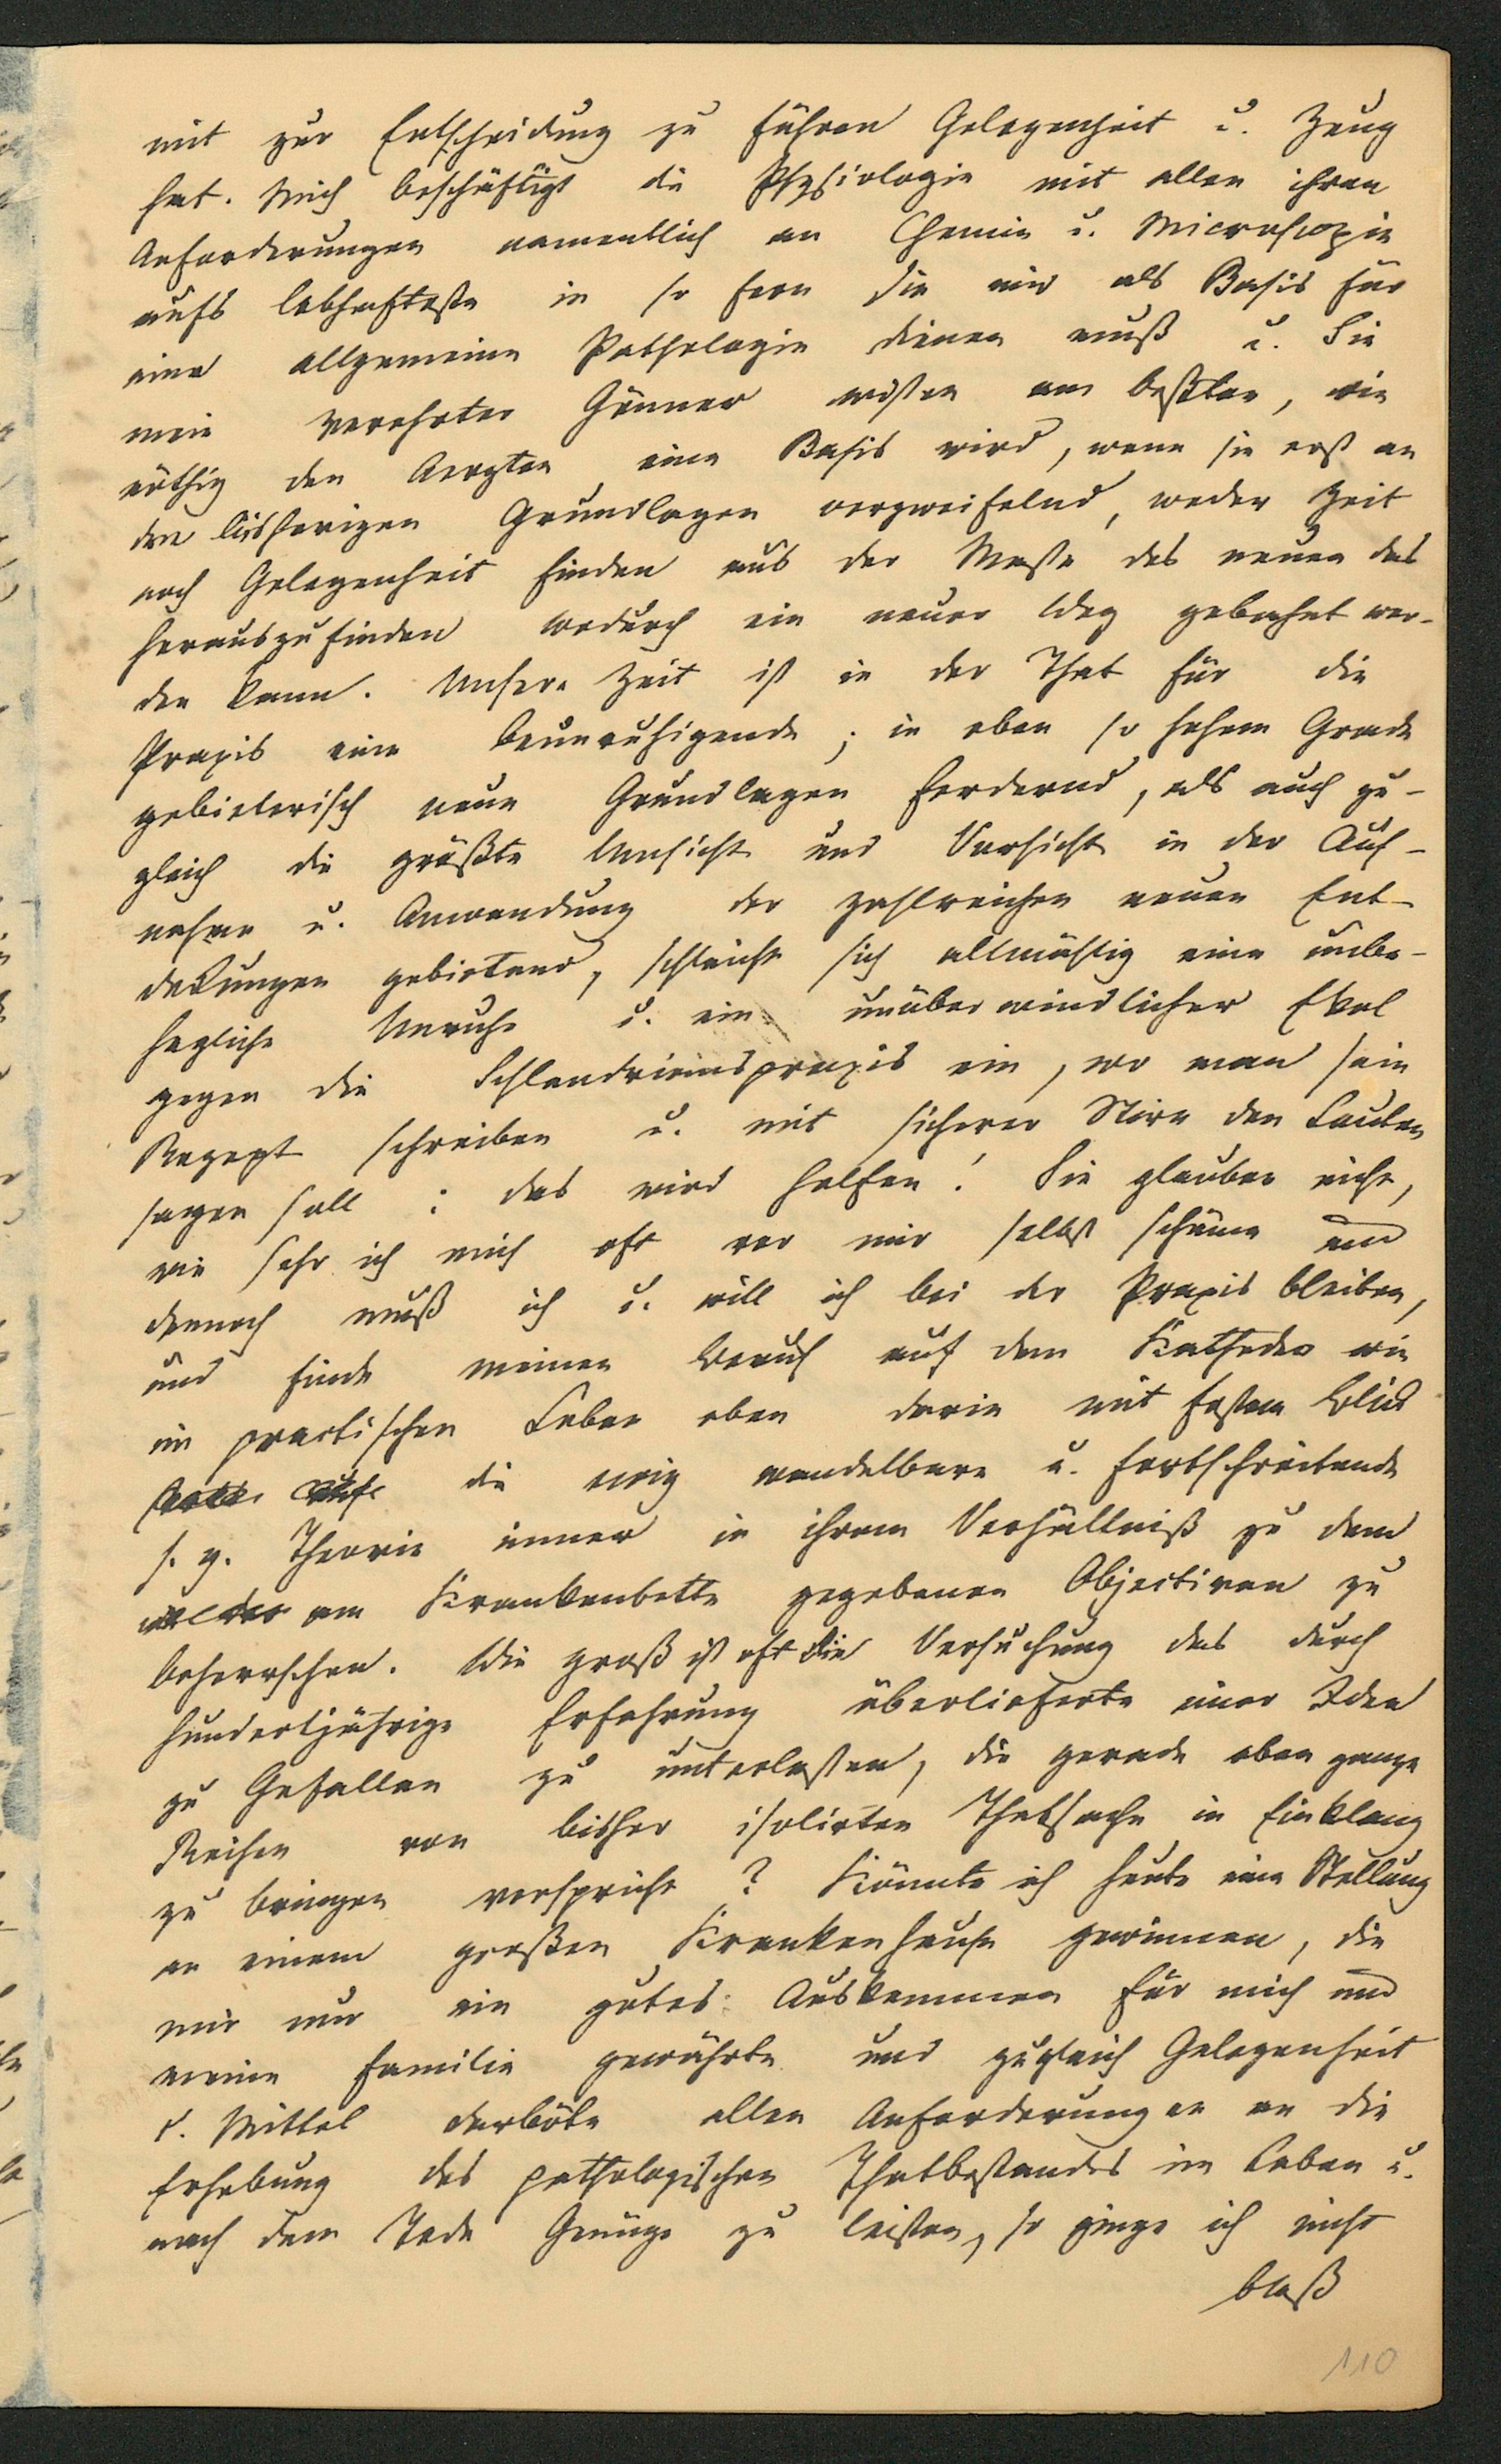 mit zur Entscheidung zu führen Gelegenheit u. Zeug
hat. Mich beschäftigt die Physiologie mit allen ihren
Anforderungen namentlich an Chemie u. Microscopie
aufs lebhafteste in so fern sie mir als Basis für
eine allgemeine Pathologie dienen muß u. Sie
mein verehrter Gönner wissen am beßten, wie
nöthig den Aerzten eine Basis wird, wenn sie erst an
den bisherigen Grundlagen verzweifelnd, weder Zeit
noch Gelegenheit finden aus der Masse des neuen das
herauszufinden wodurch ein neuer Weg gebahnt wer-
den kann. Unsere Zeit ist in der That für die
Praxis eine beunruhigende; in eben so hohem Grade
gebieterisch neue Grundlagen fordernd, als auch zu-
gleich die größte Umsicht und Vorsicht in der Auf-
nahme u. Anwendung der zahlreichen neuen Ent-
deckungen gebietend, schleicht sich allmählig eine unbe-
hagliche Unruhe u. ein unüberwindlicher Ekel
gegen die Schlendrianspraxis ein, wo man sein
Rezept schreiben u. mit sicherer Stirn den Leuten
sagen soll: das wird helfen! Sie glauben nicht,
wie sehr ich mich oft vor mir selbst schäme und
dennoch muß ich u. will ich bei der Praxis bleiben,
und finde meinen Beruf auf dem Katheder wie
im practischen Leben eben darin mit festem Blick
die ewig wandelbare u. fortschreitende
s. g. Theorie immer in ihrem Verhältniß zu dem
am Krankenbette gegebenen Objectiven zu
beherrschen. Wie groß ist oft die Versuchung das durch
hundertjährige Erfahrung überlieferte einer Idee
zu Gefallen zu unterlassen, die gerade eben ganze
Reihen von bisher isolirten Thatsachen in Einklang
zu bringen verspricht? Könnte ich heute eine Stellung
an einem großen Krankenhause gewinnen, die
mir nur ein gutes Auskommen für mich und
meine Familie gewährte und zugleich Gelegenheit
u. Mittel darböte allen Anforderungen an die
Erhebung des pathologischen Thatbestandes im Leben u.
nach dem Tode Genüge zu leisten, so ginge ich nicht
bloß
110